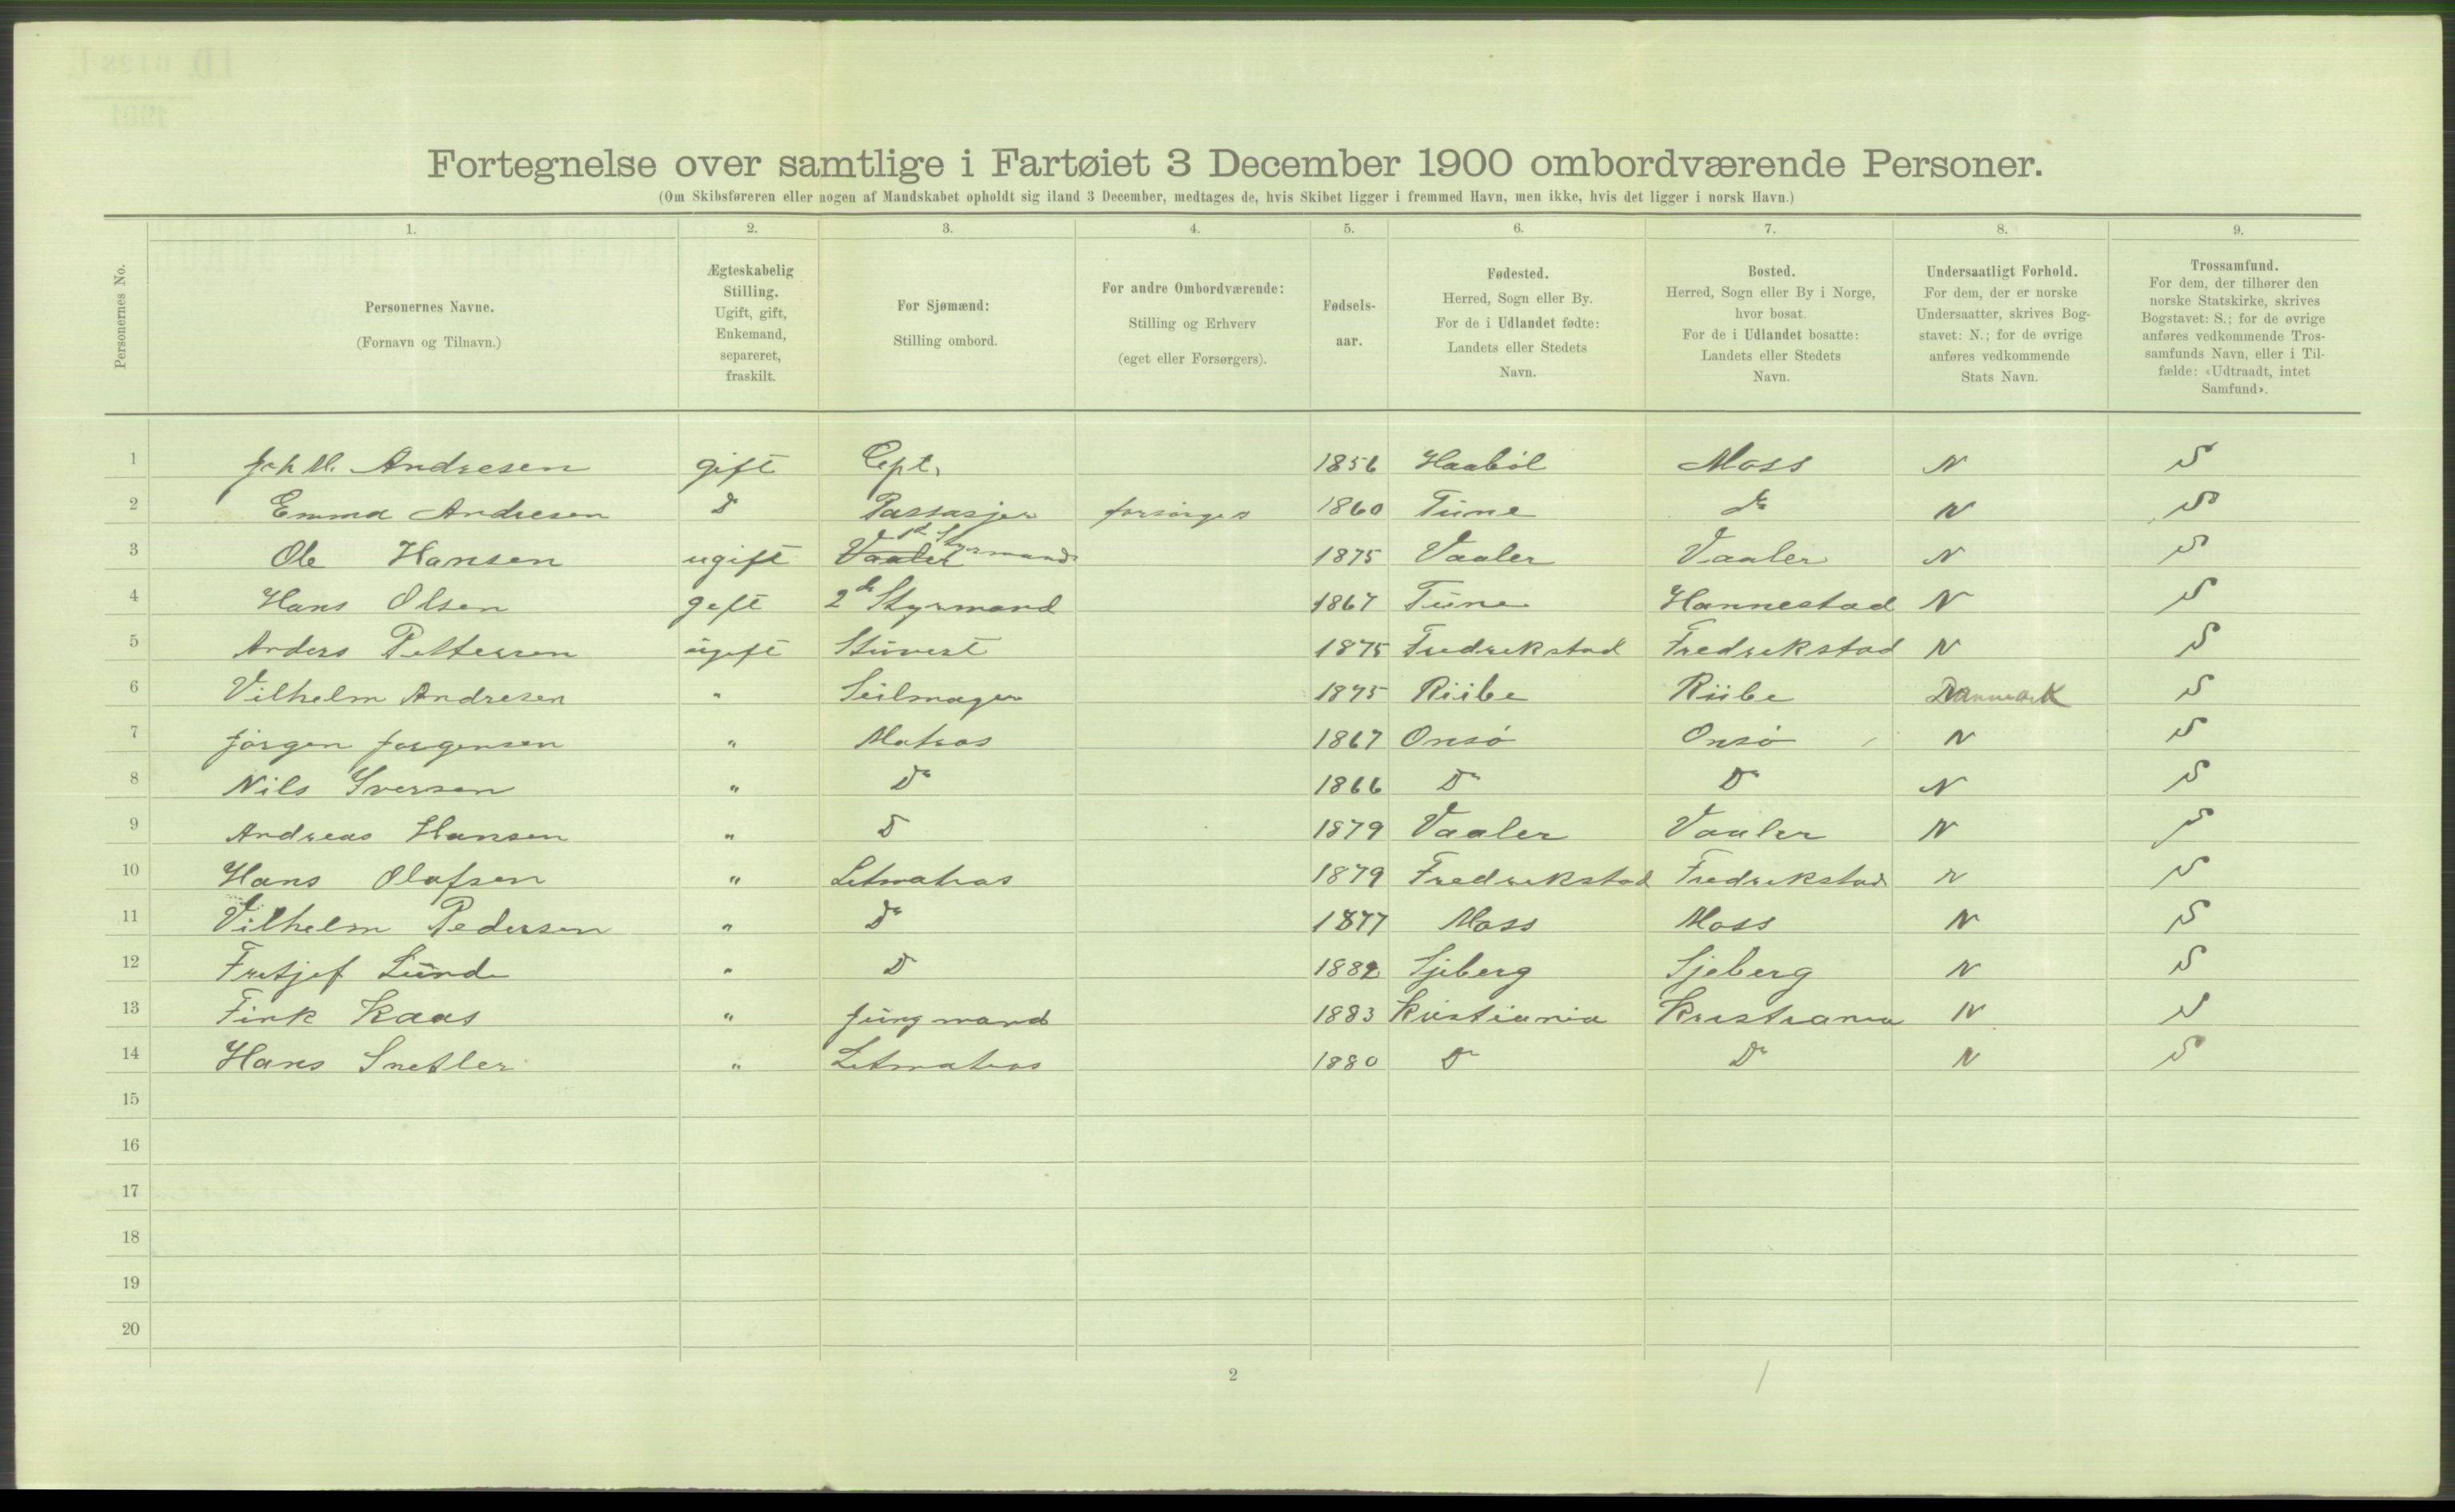 Fortegnelse over samtlige i Fartøiet 3 December 1900 ombordværende Personer.
(Om Skibsføreren eller nogen af Mandskabet opholdt sig iland 3 December, medtages de, hvis Skibet ligger i fremmed Havn, men ikke, hvis det ligger i norsk Havn.)
Personernes No.
1. 2. 3. 4. 5. 6. 7. 8. 9.
Personernes Navne.
(Fornavn og Tilnavn.)
Ægteskabelig
Stilling.
Ugift, gift,
Enkemand,
separeret,
fraskilt.
For Sjømænd:
Stilling ombord.
For andre Ombordværende:
Stilling og Erhverv
(eget eller Forsørgers).
Fødsels-
aar.
Fødested.
Herred, Sogn eller By.
For de i Udlandet fødte:
Landets eller Stedets
Navn.
Bosted.
Herred, Sogn eller By i Norge,
hvor bosat.
For de i Udlandet bosatte:
Landets eller Stedets
Navn.
Undersaatligt Forhold.
For dem, der er norske
Undersaatter, skrives Bog-
stavet: N.; for de øvrige
anføres vedkommende
Stats Navn.
Trossamfund.
For dem, der tilhører den
norske Statskirke, skrives
Bogstavet: S.; for de øvrige
anføres vedkommende Tros-
samfunds Navn, eller i Til-
fælde: «Udtraadt, intet
Samfund».
1 Andresen gift Cept. 1856 Haaböl Moss N S
2 Emma Andresen D Passasjer forsörges 1860 Tune do N S
3 Ole Hansen ugift Vaaler 1st Styrmand 1875 Vaaler Vaaler N S
4 Hans Olsen gift 2de Styrmand 1867 Tune Hannestad N S
5 Anders Pettersen ugift Stuvert 1875 Fredrekstad Fredrekstad N S
6 Vilhelm Andresen " Seilmager 1875 Riibe Riibe Danmark S
7 Jörgen Jorgensen " Matros 1867 Onsö Onsö N S
8 Nils Iversen " Do 1866 Do Do N S
9 Andreas Hansen " D 1879 Vaaler Vaaler N S
10 Hans Olafsen " Letmatros 1879 Fredrekstad Fredrekstad N S
11 Vilhelm Pedersen " Do 1877 Moss Moss N S
12 Fretjef Lund " D 1882 Sjeberg Sjeberg N S
13 Fink Kaas " Jungmand 1883 Kristiania Kristiania N S
14 Hans " Letmatros 1880 Do Do N S
15
16
17
18
19
20
2